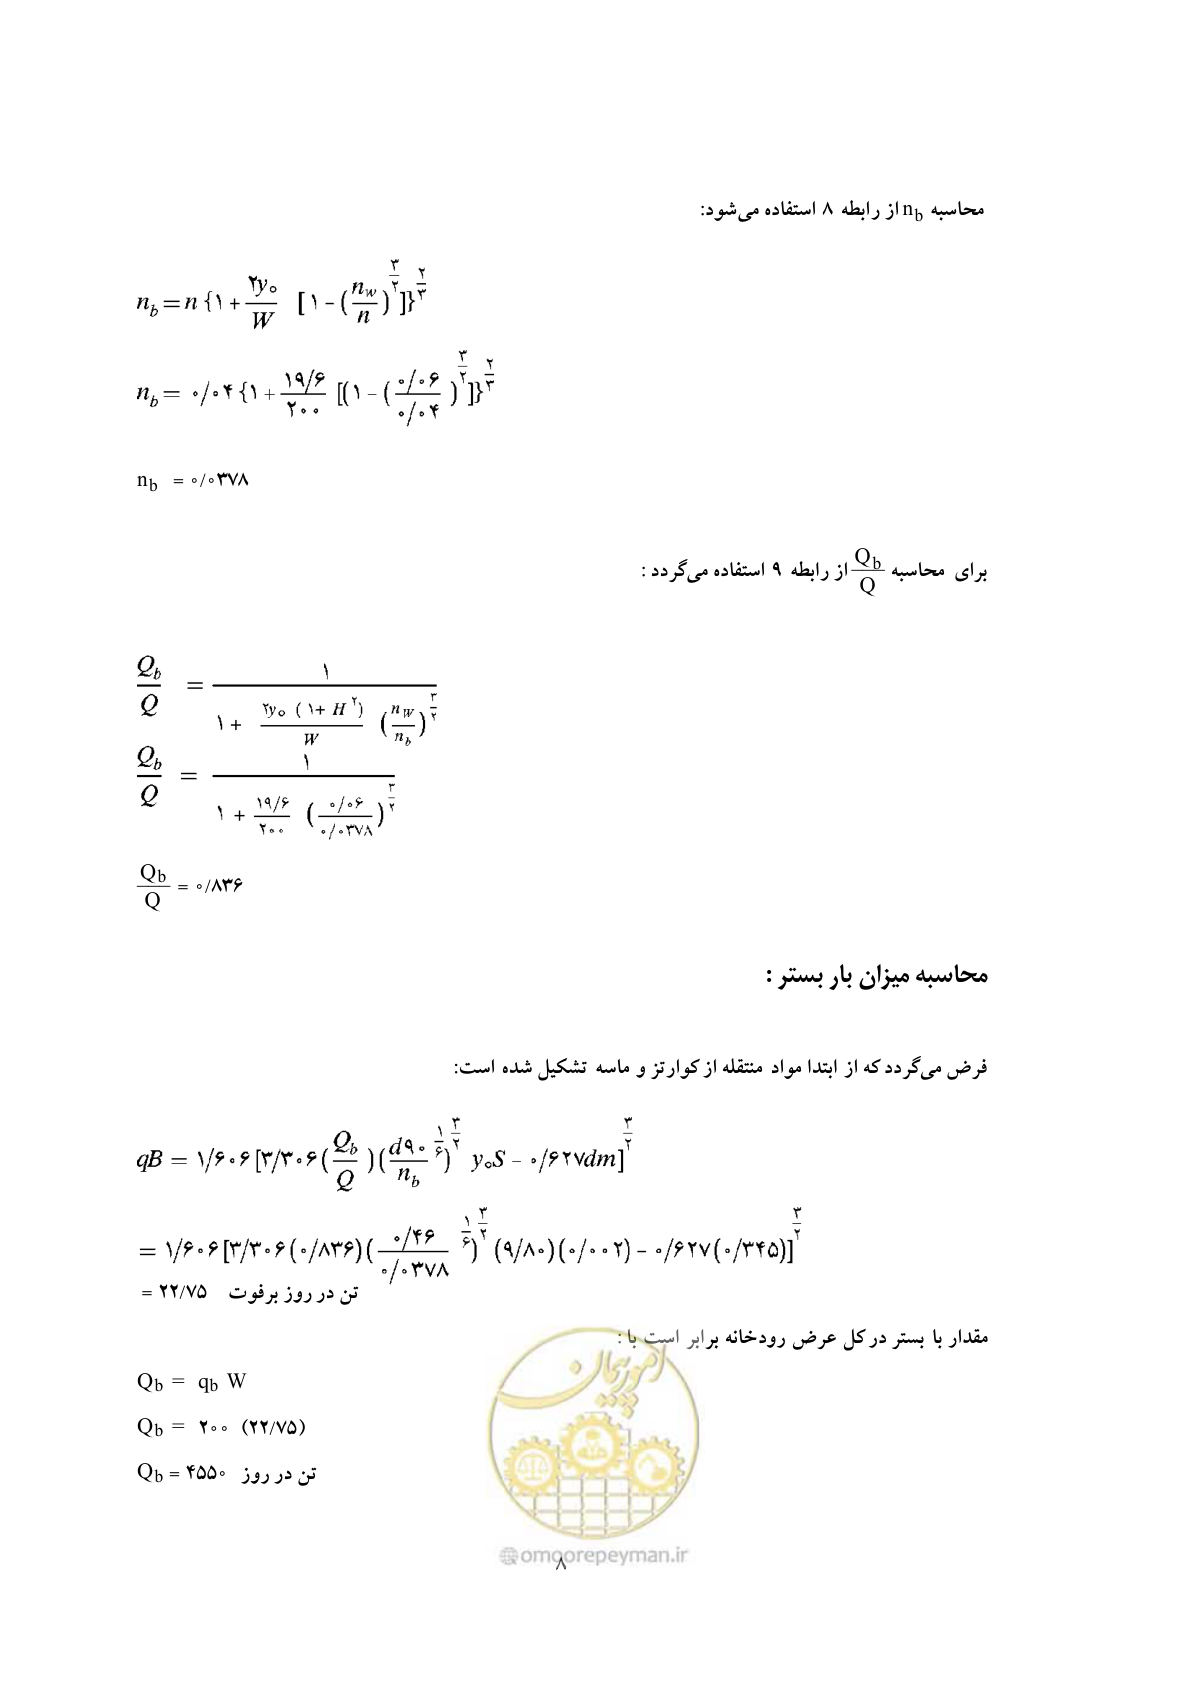 محاسبه n_b از رابطه ۸ استفاده می‌شود:
n_b = n {۱ + ۲y۰/W [۱ - (n_w/n)^(۳/۲)]}^(۲/۳)
n_b = ۰/۰۴ {۱ + (۱۹/۶)/(۲۰۰) [(۱ - ((۰/۰۶)/(۰/۰۴))^(۳/۲)]}^(۲/۳)
n_b = ۰/۰۳۷۸
برای محاسبه Q_b/Q از رابطه ۹ استفاده می‌گردد :
Q_b/Q = ۱ / (۱ + ۲y۰ (۱ + H^۲)/W (n_W/n_b)^(۳/۲))
Q_b/Q = ۱ / (۱ + (۱۹/۶)/(۲۰۰) ((۰/۰۶)/(۰/۰۳۷۸))^(۳/۲))
Q_b/Q = ۰/۸۳۶
محاسبه میزان بار بستر :
فرض می‌گردد که از ابتدا مواد منتقله از کوارتز و ماسه تشکیل شده است:
qB = ۱/۶۰۶ [۳/۳۰۶ (Q_b/Q) (d۹۰^(۱/۶)/n_b)^(۳/۲) y۰S - ۰/۶۲۷dm]^(۳/۲)
= ۱/۶۰۶ [۳/۳۰۶ (۰/۸۳۶) ((۰/۴۶)^(۱/۶)/(۰/۰۳۷۸))^(۳/۲) (۹/۸۰) (۰/۰۰۲) - ۰/۶۲۷ (۰/۳۴۵)]^(۳/۲)
= ۲۲/۷۵ تن در روز برفوت
مقدار با بستر در کل عرض رودخانه برابر است با :
Q_b = q_b W
Q_b = ۲۰۰ (۲۲/۷۵)
Q_b = ۴۵۵۰ تن در روز
امور پیمان
@omoorepeyman.ir
۸